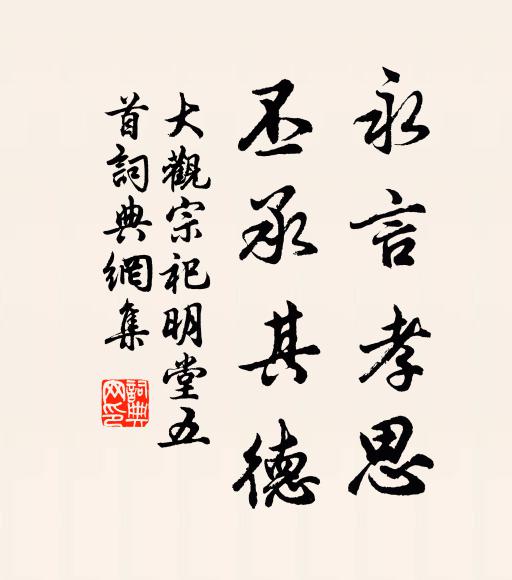 永言孝思
丕承其德
大觀宗祀明堂五
首詞典網集
詞典
网印